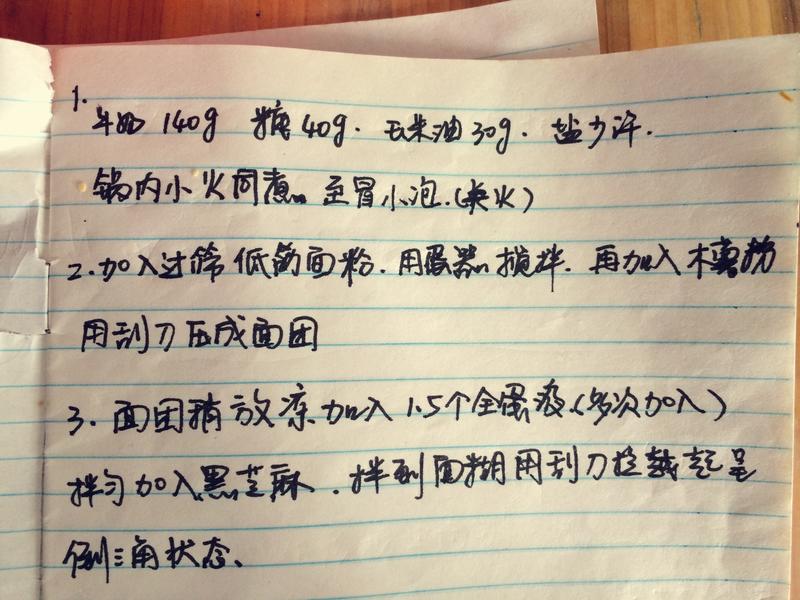 1.
牛奶 140g 糖 40g. 玉米油 30g. 盐少许.
锅内小火同煮 至冒小泡.(关火)
2.加入过筛低筋面粉.用蛋器搅拌.再加入木薯粉
用刮刀压成面团
3.面团稍放凉加入1.5个全蛋液(多次加入)
拌匀加入黑芝麻.拌到面糊用刮刀起呈
倒三角状态、